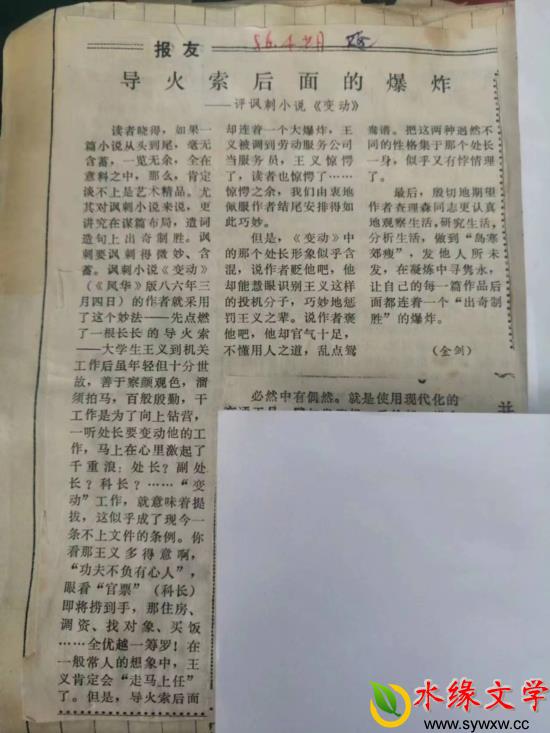 报友
86.4.
导火索后面的爆炸
——评讽刺小说《变动》
读者晓得，如果一
篇小说从头到尾，毫无
含蓄，一览无余，全在
意料之中，那么，肯定
谈不上是艺术精品。尤
其对讽刺小说来说，更
讲究在谋篇布局，遣词
造句上出奇制胜。讽
刺要讽刺得微妙、含
蓄。讽刺小说《变动》
（《风华》版八六年三
月四日）的作者就采用
了这个妙法——先点燃
了一根长长的导火索
——大学生王义到机关
工作后虽年轻但十分世
故，善于察颜观色，溜
须拍马，百般殷勤，干
工作是为了向上钻营，
一听处长要变动他的工
作，马上在心里激起了
千重浪：处长？副处
长？科长？……“变
动”工作，就意味着提
拔，这似乎成了现今一
条不上文件的条例。你
看那王义多得意啊，
“功夫不负有心人”，
眼看“官票”（科长）
即将捞到手，那住房、
调资、找对象、买饭
……全优越一筹罗！在
一般常人的想象中，王
义肯定会“走马上任”
了。但是，导火索后面
却连着一个大爆炸，王
义被调到劳动服务公司
当服务员，王义惊愕
了，读者也惊愕了……
惊愕之余，我们由衷地
佩服作者结尾安排得如
此巧妙。
但是，《变动》中
的那个处长形象似乎含
混，说作者贬他吧，他
却能慧眼识别王义这样
的投机分子，巧妙地惩
罚王义之辈。说作者褒
他吧，他却官气十足，
不懂用人之道，乱点鸳
鸯谱。把这两种迥然不
同的性格集于那个处长
一身，似乎又有悖情理
了。
最后，殷切地期望
作者查理森同志更认真
地观察生活，研究生活，
分析生活，做到“岛寒
郊瘦”，发他人所未
发，在凝炼中寻隽永，
让自己的每一篇作品后
面都连着一个“出奇制
胜”的爆炸。
（金剑）
必然中有偶然。就是使用现代化的
水缘文学
www.sywxw.com